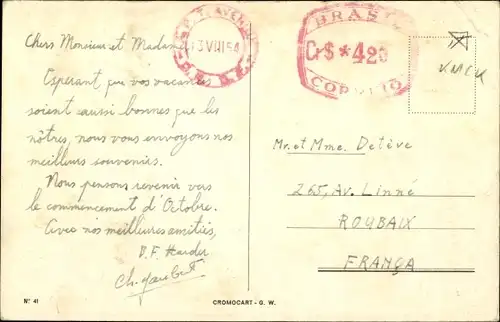 Chers Monsieur et Madame
Espérant que vos vacances
soient aussi bonnes que les
nôtres, nous vous envoyons nos
meilleurs souvenirs.
Nous pensons revenir vers
le commencement d'Octobre.
Avec nos meilleures amitiés,
13 VIII 54
BRASIL
Cr$ *420
CORREIO
Mr. et Mme. Detève
265, Av. Linné
ROUBAIX
FRANÇA
Nº 41
CROMOCART - G. W.